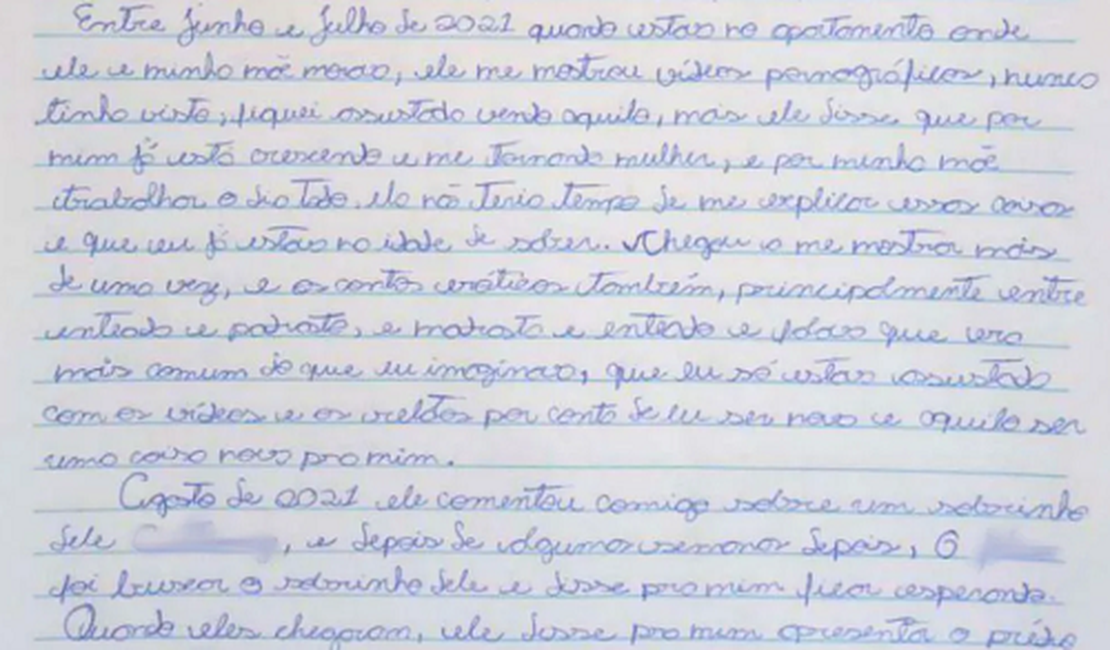 Entre junho e julho de 2021 quando estava no apartamento onde
ele e minha mãe morava, ele me mostrou vídeos pornográficos, nunca
tinha visto, fiquei assustada vendo aquilo, mas ele disse que por
mim já está crescendo e me tornando mulher, e por minha mãe
trabalhar o dia todo ela não teria tempo de me explicar essas coisas
e que eu já estava na idade de saber. Chegou a me mostra mais
de uma vez, e os contos eróticos também, principalmente entre
enteada e padrasto, e madrasta e enteado e falava que era
mais comum do que eu imaginava, que eu só estava assustada
com os vídeos e os relatos por conta de eu ser nova e aquilo ser
uma coisa nova pra mim.
Agosto de 2021 ele comentou comigo sobre um sobrinho
dele , e depois de algumas semanas depois, O
foi buscar o sobrinho dele e disse pra mim ficar esperando.
Quando eles chegaram, ele disse pra mim apresenta o prédio